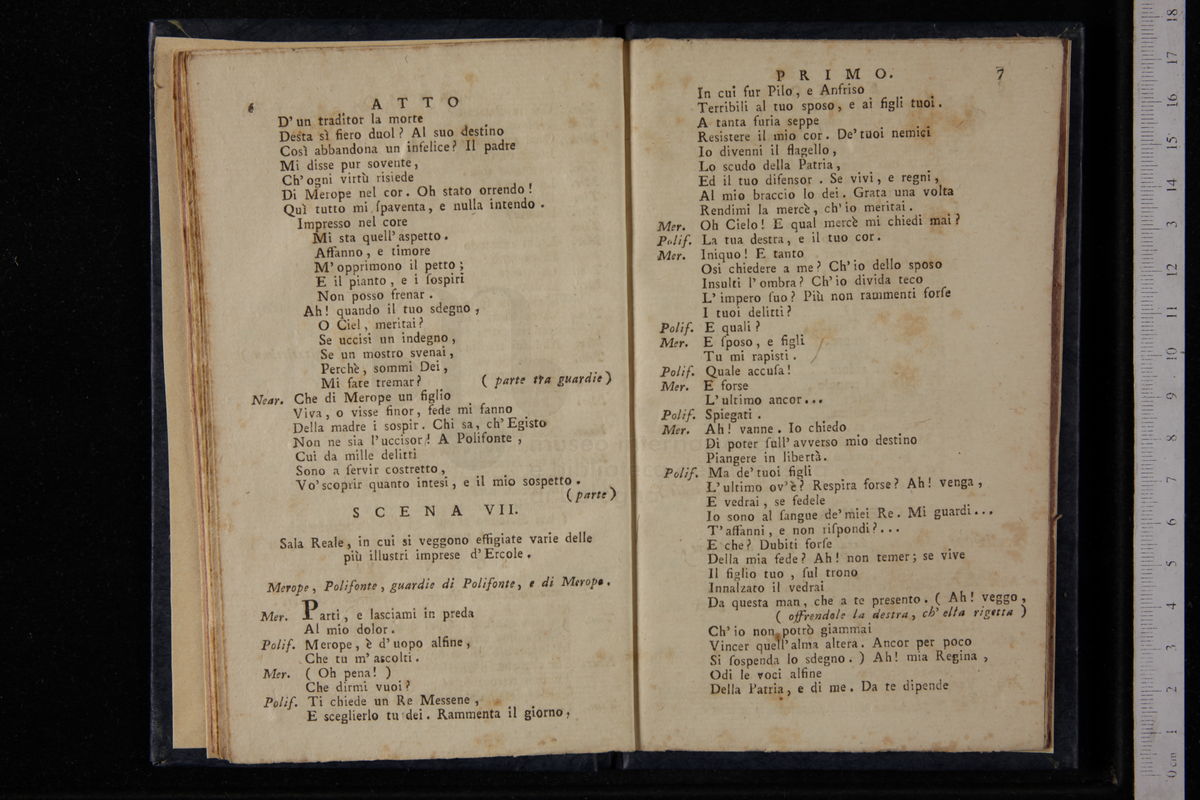 6
A T T O
D' un traditor la morte
Desta sì fiero duol? Al suo destino
Così abbandona un infelice? Il padre
Mi disse pur sovente,
Ch' ogni virtù risiede
Di Merope nel cor. Oh stato orrendo!
Quì tutto mi ſpaventa, e nulla intendo.
Impresso nel core
Mi sta quell' aspetto.
Affanno, e timore
M' opprimono il petto;
E il pianto, e i ſospiri
Non posso frenar.
Ah! quando il tuo sdegno,
O Ciel, meritai?
Se uccisi un indegno,
Se un mostro svenai,
Perchè, sommi Dei,
Mi fate tremar? ( parte tra guardie )
Near. Che di Merope un figlio
Viva, o visse finor, fede mi fanno
Della madre i sospir. Chi sa, ch' Egisto
Non ne sia l' uccisor! A Polifonte,
Cui da mille delitti
Sono a ſervir costretto,
Vo' scoprir quanto intesi, e il mio sospetto.
( parte )
S C E N A VII.
Sala Reale, in cui si veggono effigiate varie delle
più illustri imprese d' Ercole.
Merope, Polifonte, guardie di Polifonte, e di Merope.
Mer. Parti, e lasciami in preda
Al mio dolor.
Polif. Merope, è d' uopo alfine,
Che tu m' ascolti.
Mer. ( Oh pena! )
Che dirmi vuoi?
Polif. Ti chiede un Re Messene,
E sceglierlo tu dei. Rammenta il giorno,
P R I M O. 7
In cui fur Pilo, e Anfriso
Terribili al tuo sposo, e ai figli tuoi.
A tanta furia seppe
Resistere il mio cor. De' tuoi nemici
Io divenni il flagello,
Lo scudo della Patria,
Ed il tuo difensor. Se vivi, e regni,
Al mio braccio lo dei. Grata una volta
Rendimi la mercè, ch' io meritai.
Mer. Oh Cielo! E qual mercè mi chiedi mai?
Polif. La tua destra, e il tuo cor.
Mer. Iniquo! E tanto
Osi chiedere a me? Ch' io dello sposo
Insulti l' ombra? Ch' io divida teco
L' impero ſuo? Più non rammenti forſe
I tuoi delitti?
Polif. E quali?
Mer. E ſposo, e figli
Tu mi rapisti.
Polif. Quale accuſa!
Mer. E forse
L' ultimo ancor...
Polif. Spiegati.
Mer. Ah! vanne. Io chiedo
Di poter ſull' avverso mio destino
Piangere in libertà.
Polif. Ma de' tuoi figli
L' ultimo ov' è? Respira forse? Ah! venga,
E vedrai, se fedele
Io sono al ſangue de' miei Re. Mi guardi...
T' affanni, e non riſpondi?...
E che? Dubiti forſe
Della mia fede? Ah! non temer; se vive
Il figlio tuo, ſul trono
Innalzato il vedrai
Da questa man, che a te presento. ( Ah! veggo,
( offrendole la destra, ch' ella rigetta )
Ch' io non potrò giammai
Vincer quell' alma altera. Ancor per poco
Si ſospenda lo sdegno. ) Ah! mia Regina,
Odi le voci alfine
Della Patria, e di me. Da te dipende